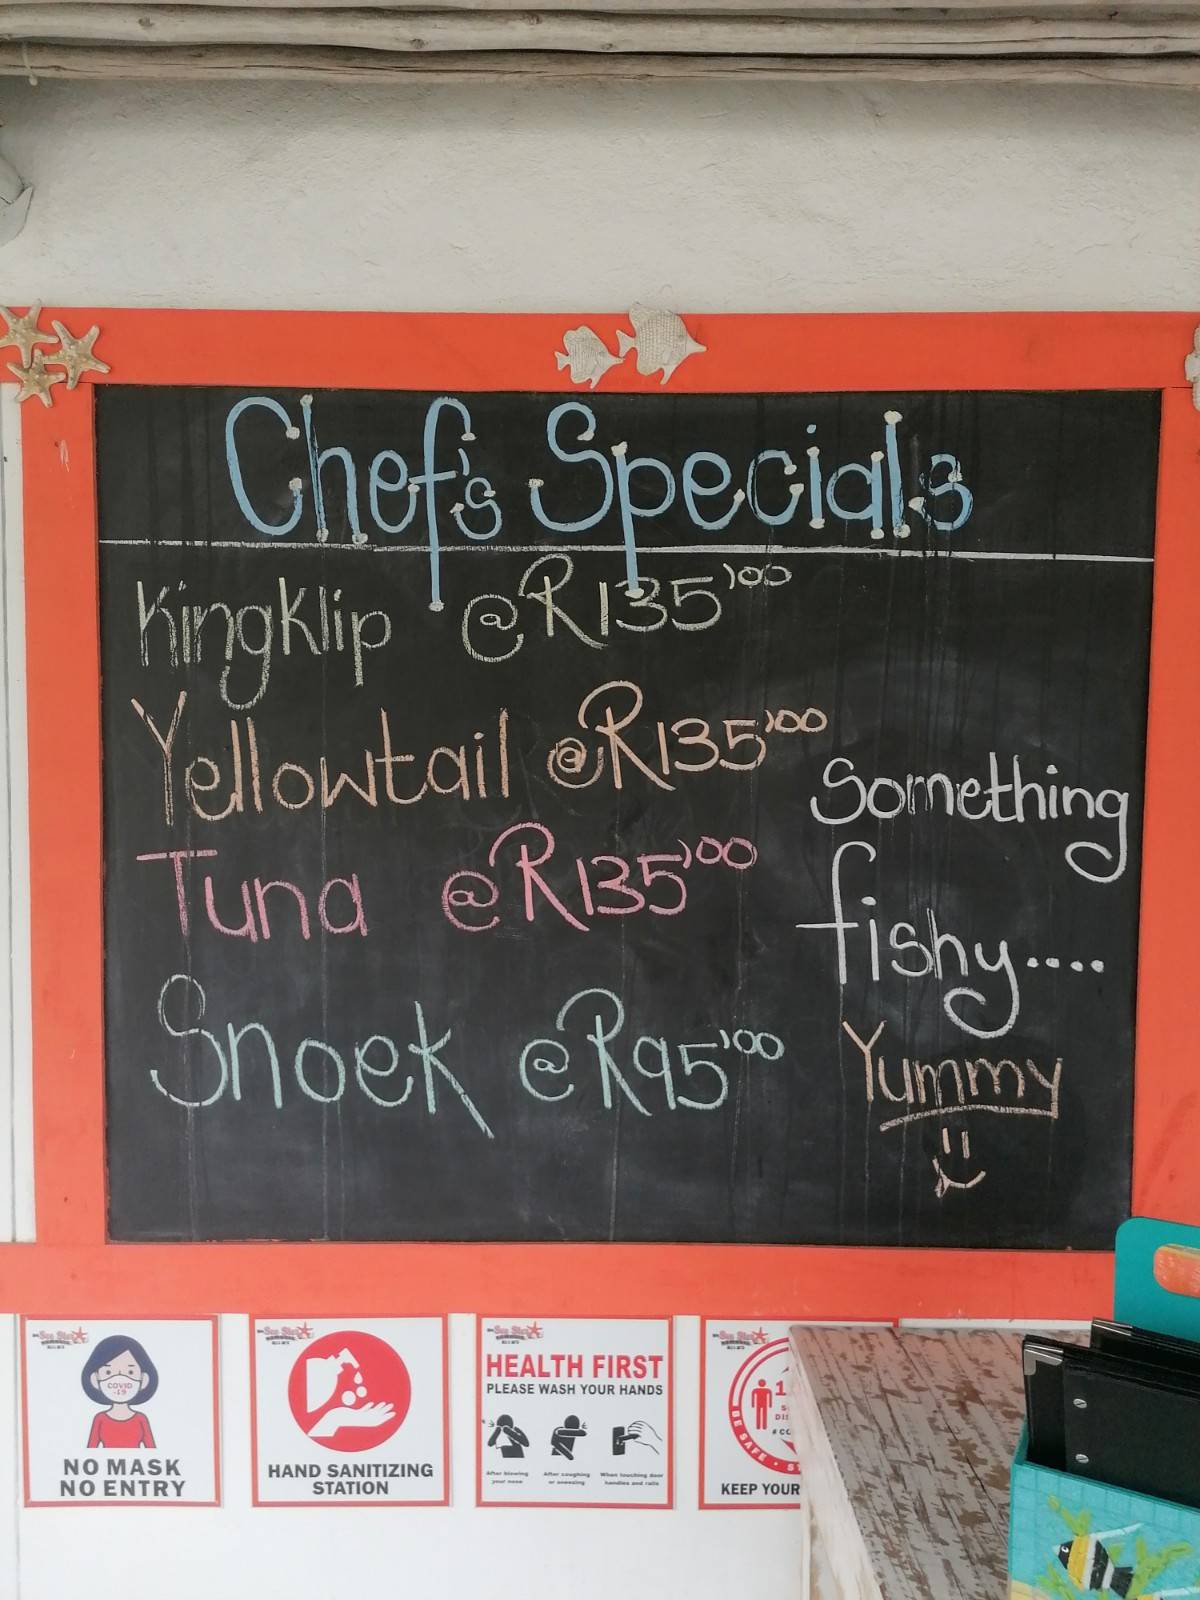 Chef's Specials
Kingklip @ R135,00
Yellowtail @ R135,00
Tuna @ R135,00
Snoek @ R95,00
Something
fishy....
Yummy
Sea Star
COVID
-19
NO MASK
NO ENTRY
Sea Star
HAND SANITIZING
STATION
Sea Star
HEALTH FIRST
PLEASE WASH YOUR HANDS
After blowing
your nose
After coughing
or sneezing
When touching door
handles and rails
Sea Star
BE SAFE
KEEP YOUR